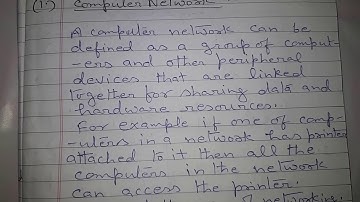 (1.) Computer Network
A computer network can be
defined as a group of comput-
-ers and other peripheral
devices that are linked
together for sharing data and
hardware resources.
For example if one of comp-
-uters in a network has printer
attached to it then all the
computers in the network
can access the printer.
networking.